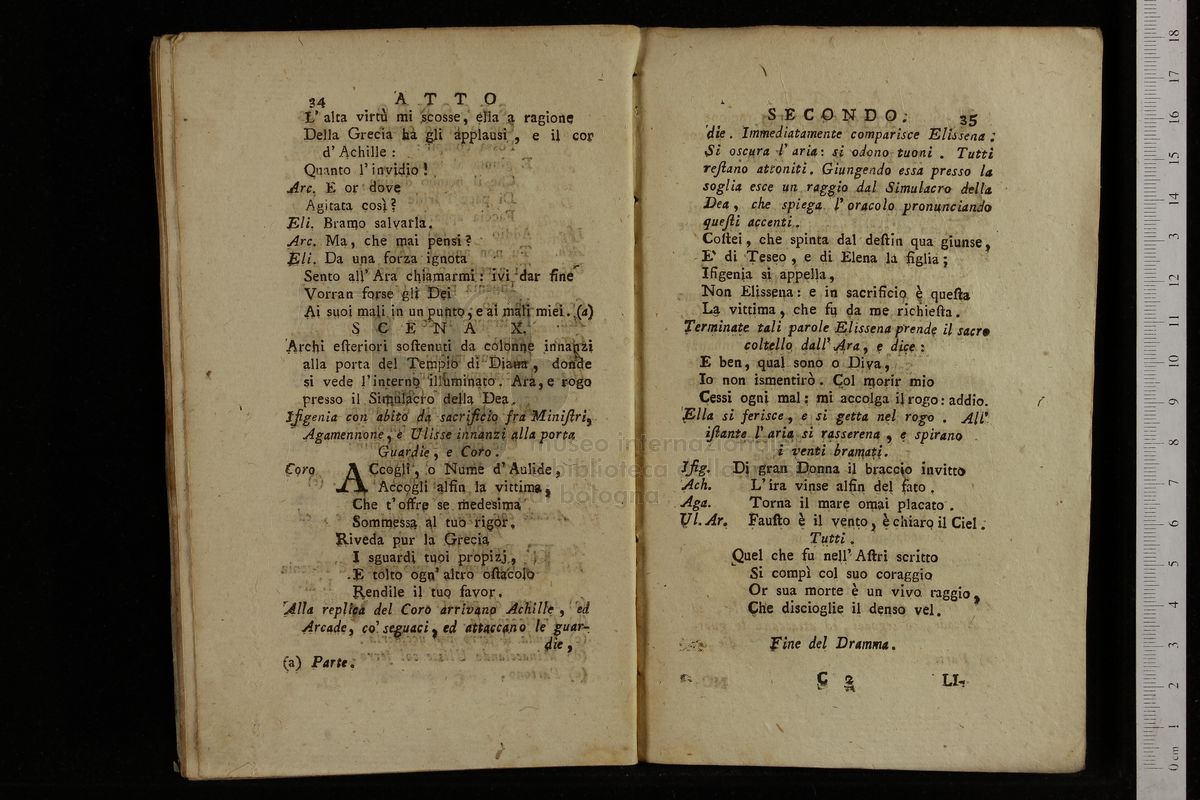 34 ATTO
L' alta virtù mi scosse, ella a ragione
Della Grecia ha gli applausi, e il cor
d' Achille:
Quanto l' invidio!
Arc. E or dove
Agitata così?
Eli. Bramo salvarla.
Arc. Ma, che mai pensi?
Eli. Da una forza ignota
Sento all' Ara chiamarmi: ivi dar fine
Vorran forse gli Dei
Ai suoi mali in un punto, e ai mali miei. (a)
SCENA X.
Archi eſteriori soſtenuti da colonne innanzi
alla porta del Tempio di Diana, donde
si vede l' interno illuminato. Ara, e rogo
presso il Simulacro della Dea.
Ifigenia con abito da sacrificio fra Miniſtri,
Agamennone, e Ulisse innanzi alla porta
Guardie, e Coro.
Coro ACcogli, o Nume d' Aulide,
Accogli alfin la vittima,
Che t' offre se medesima
Sommessa al tuo rigor.
Riveda pur la Grecia
I sguardi tuoi propizj,
E tolto ogn' altro oſtacolo
Rendile il tuo favor.
Alla replica del Coro arrivano Achille, ed
Arcade, co' seguaci, ed attaccano le guar-
die,
(a) Parte.
SECONDO. 35
die. Immediatamente comparisce Elissena:
Si oscura l' aria: si odono tuoni. Tutti
reſtano attoniti. Giungendo essa presso la
soglia esce un raggio dal Simulacro della
Dea, che spiega l' oracolo pronunciando
queſti accenti.
Coſtei, che spinta dal deſtin qua giunse,
E' di Teseo, e di Elena la figlia;
Ifigenia si appella,
Non Elissena: e in sacrificio è queſta
La vittima, che fu da me richieſta.
Terminate tali parole Elissena prende il sacro
coltello dall' Ara, e dice:
E ben, qual sono o Diva,
Io non ismentirò. Col morir mio
Cessi ogni mal: mi accolga il rogo: addio.
Ella si ferisce, e si getta nel rogo. All'
iſtante l' aria si rasserena, e spirano
i venti bramati.
Ifig. Di gran Donna il braccio invitto
Ach. L' ira vinse alfin del fato.
Aga. Torna il mare omai placato.
Ul. Ar. Fauſto è il vento, è chiaro il Ciel.
Tutti.
Quel che fu nell' Aſtri scritto
Si compì col suo coraggio
Or sua morte è un vivo raggio,
Che discioglie il denso vel.
Fine del Dramma.
C 2 LI-
museo internazionale
biblioteca della
di bologna
0 cm 1 2 3 4 5 6 7 8 9 10 11 12 13 14 15 16 17 18